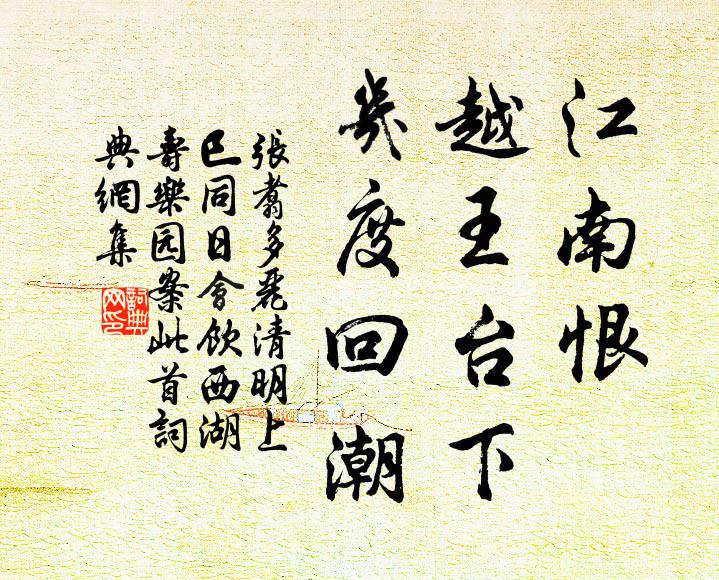 江南恨
越王台下
幾度回潮
張翥多麗清明上
巳同日會飲西湖
壽樂园案此首詞
典網集
詞典網印